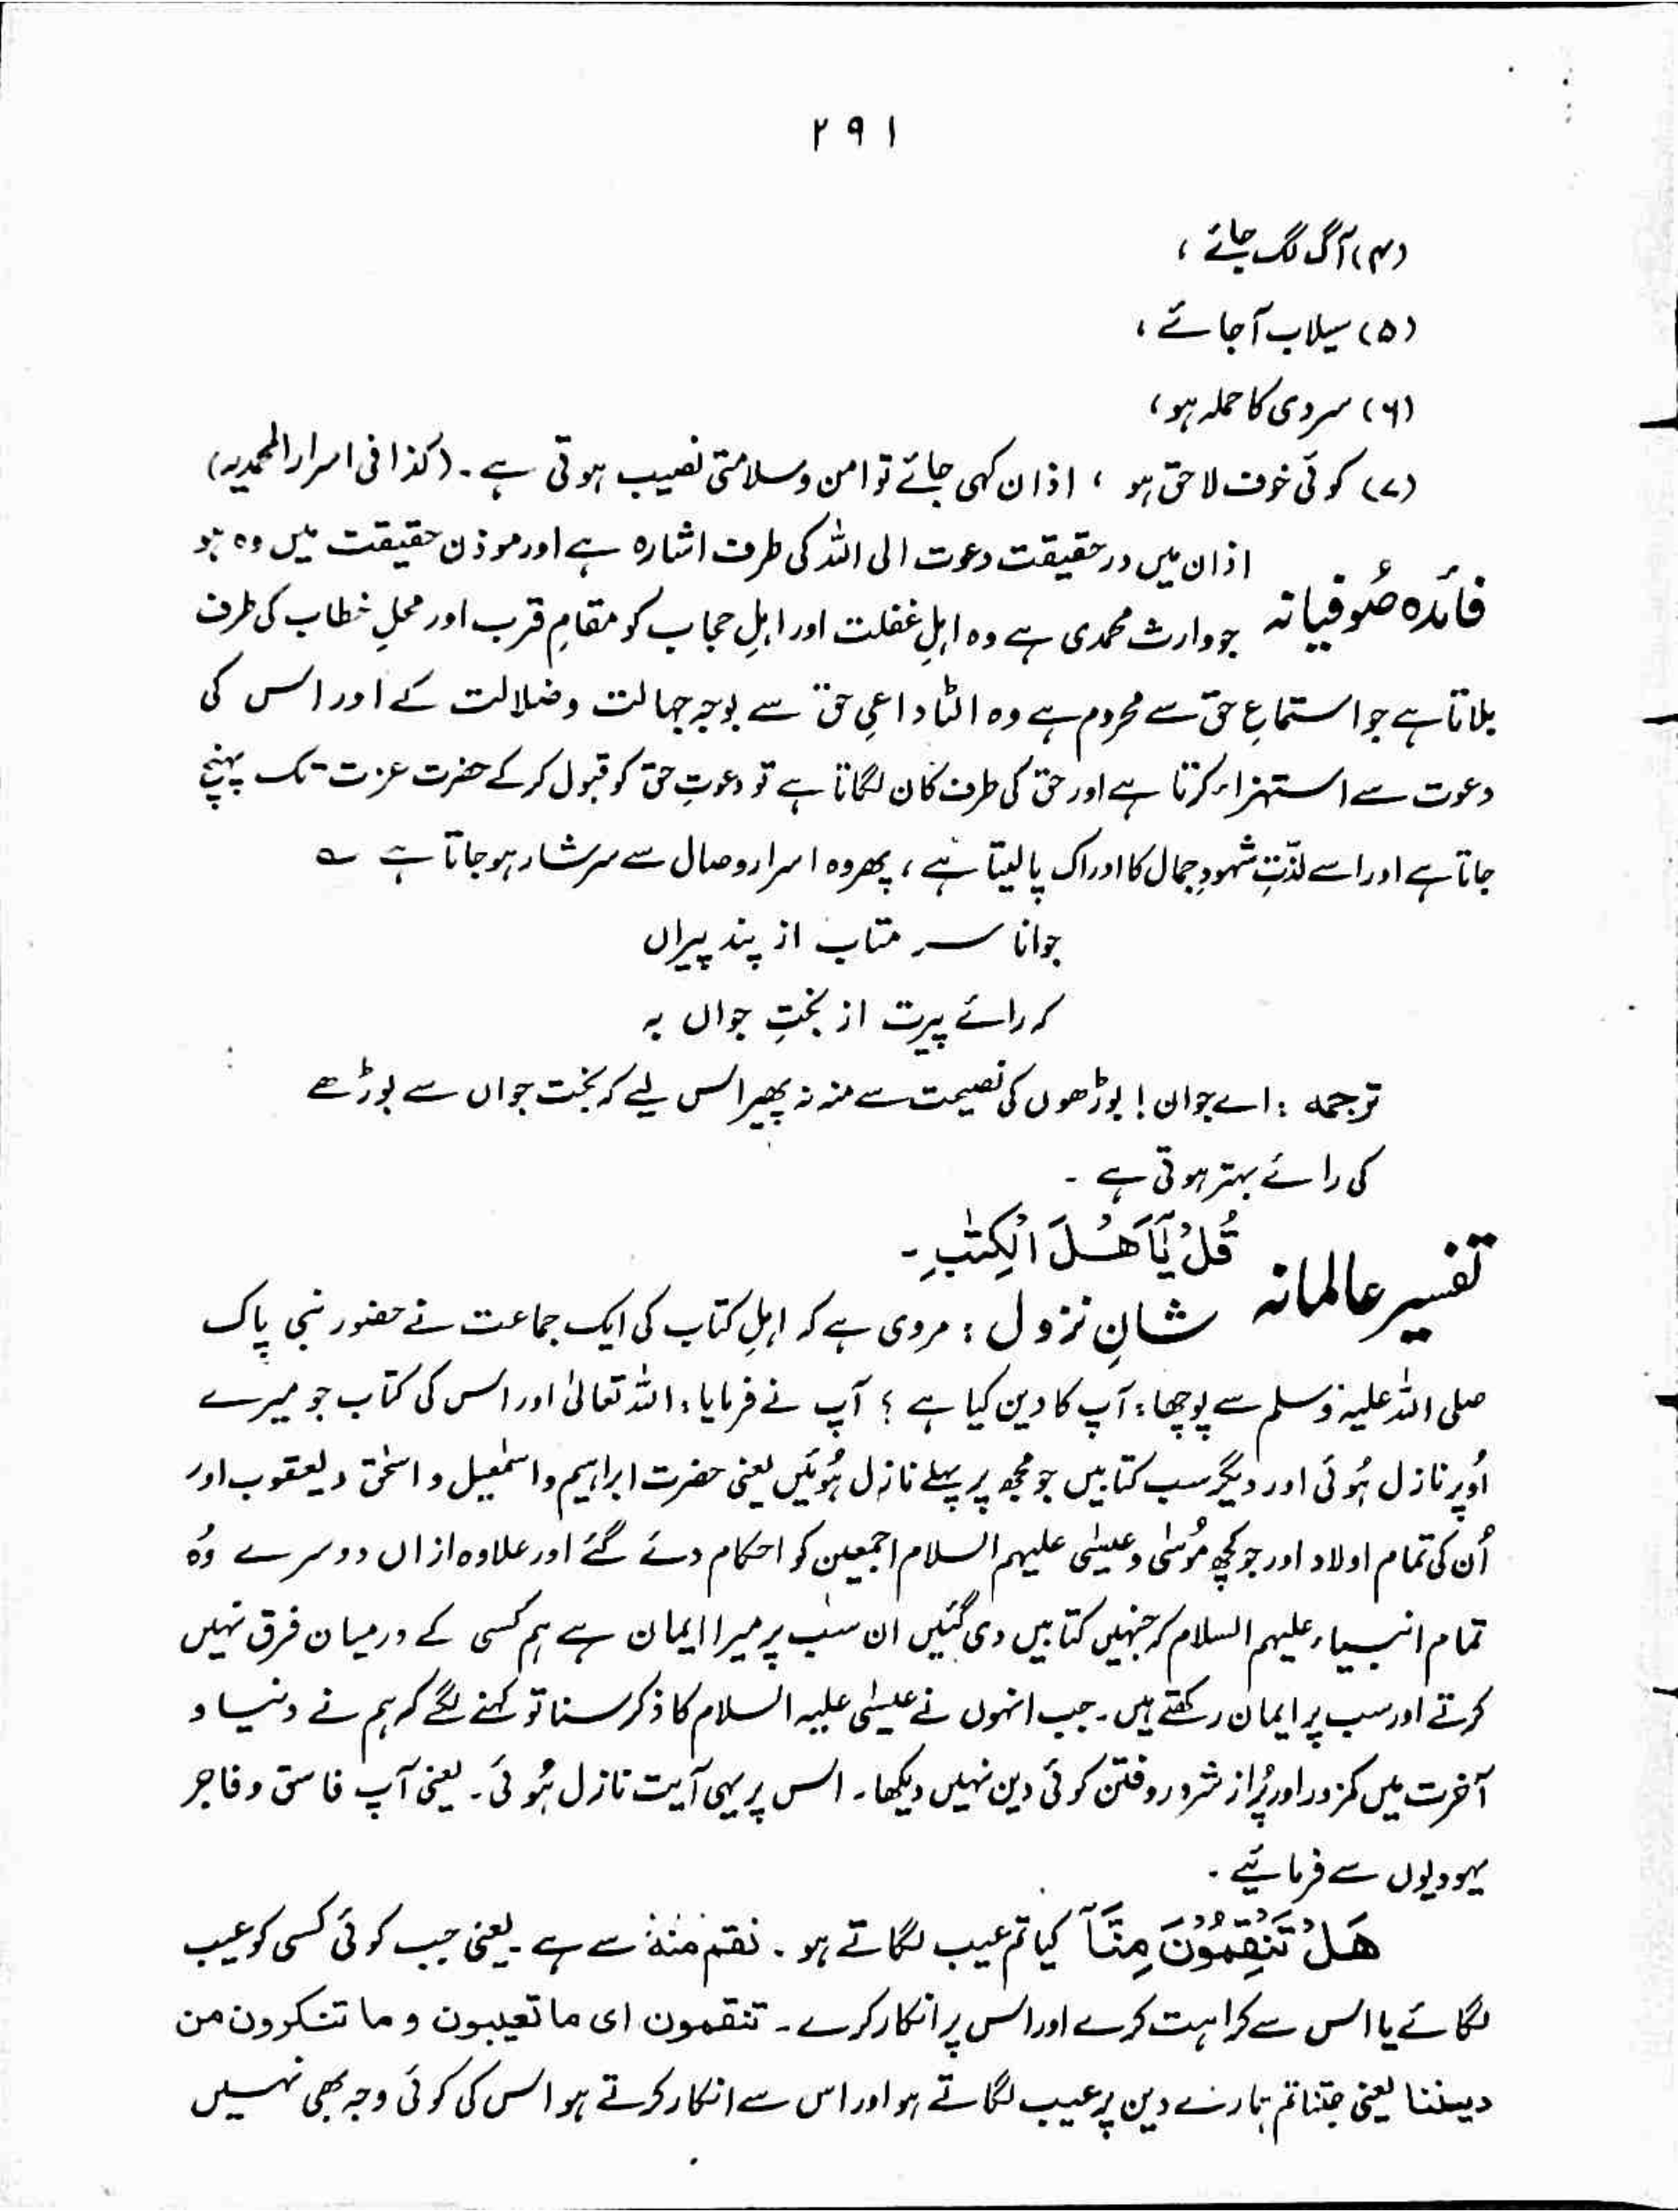 ۲۹۱
(۴) آگ لگ جائے ،
(۵) سیلاب آجائے ،
(۶) سردی کا حملہ ہو ،
(۷) کوئی خوف لاحق ہو ، اذان کہی جائے تو امن وسلامتی نصیب ہوتی ہے ۔ (کذا فی اسرار المحمدیہ)
فائدہ صُوفیانہ اذان میں درحقیقت دعوت الی اللہ کی طرف اشارہ ہے اور موذن حقیقت میں وہ ہو
جو وارث محمدی ہے وہ اہلِ غفلت اور اہلِ حجاب کو مقامِ قرب اور محلِ خطاب کی طرف
بلاتا ہے جو استماعِ حق سے محروم ہے وہ الٹا داعیِ حق سے بوجہ جہالت وضلالت کے اور اس کی
دعوت سے استہزاء کرتا ہے اور حق کی طرف کان لگاتا ہے تو دعوتِ حق کو قبول کرکے حضرت عزت تک پہنچ
جاتا ہے اور اسے لذّتِ شہودِ جمال کا ادراک پالیتا ہے ، پھر وہ اسرار وصال سے سرشار ہوجاتا ہے ؎
جوانا سر متاب از پند پیراں
کہ رائے پیرت از بختِ جواں بہ
ترجمہ : اے جوان ! بوڑھوں کی نصیحت سے منہ نہ پھیر اس لیے کہ بخت جواں سے بوڑھے
کی رائے بہتر ہوتی ہے ۔
تفسیر عالمانہ قُلْ يٰٓاَهْلَ الْكِتٰبِ ۔
شانِ نزول : مروی ہے کہ اہلِ کتاب کی ایک جماعت نے حضور نبی پاک
صلی اللہ علیہ وسلم سے پوچھا : آپ کا دین کیا ہے ؟ آپ نے فرمایا : اللہ تعالیٰ اور اس کی کتاب جو میرے
اُوپر نازل ہُوئی اور دیگر سب کتابیں جو مجھ پر پہلے نازل ہُوئیں یعنی حضرت ابراہیم واسمٰعیل و اسحٰق ویعقوب اور
اُن کی تمام اولاد اور جو کچھ مُوسٰی وعیسٰی علیہم السلام اجمعین کو احکام دئے گئے اور علاوہ ازاں دوسرے وُہ
تمام انبیاء علیہم السلام کہ جنہیں کتابیں دی گئیں ان سب پر میرا ایمان ہے ہم کسی کے درمیان فرق نہیں
کرتے اور سب پر ایمان رکھتے ہیں۔ جب انہوں نے عیسٰی علیہ السلام کا ذکر سنا تو کہنے لگے کہ ہم نے دنیا و
آخرت میں کمزور اور پُراز شرور وفتن کوئی دین نہیں دیکھا ۔ اس پر یہی آیت نازل ہُوئی ۔ یعنی آپ فاسق وفاجر
یہودیوں سے فرمائیے ۔
هَلْ تَنْقِمُوْنَ مِنَّآ کیا تم عیب لگاتے ہو ۔ نقم منہ سے ہے ۔ یعنی جب کوئی کسی کو عیب
لگائے یا اس سے کراہت کرے اور اس پر انکار کرے ۔ تنقمون ای ما تعیبون و ما تنکرون من
دیننا یعنی جتنا تم ہمارے دین پر عیب لگاتے ہو اور اس سے انکار کرتے ہو اس کی کوئی وجہ بھی نہیں